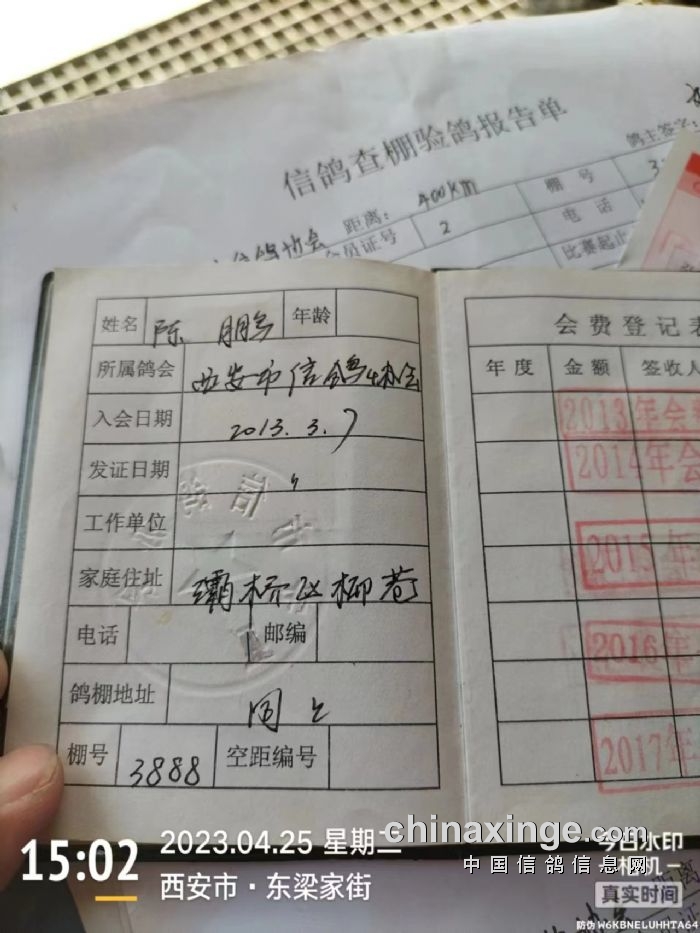 信鸽查棚验鸽报告单
鸽主签字:
距离: 400km
棚号 3
信鸽协会
会员证号 2
电话
比赛起止
姓名 陈鹏 年龄
所属鸽会 西安市信鸽协会
入会日期 2013.3.7
发证日期 〃
工作单位
家庭住址 灞桥区柳巷
电话 邮编
鸽棚地址 同上
棚号 3888 空距编号
会费登记表
年度 金额 签收人
2013年会
2014年会
2015年
2016年
2017年
chinaxinge.com
中国信鸽信息网
15:02
2023.04.25 星期二
西安市·东梁家街
今日水印
相机
真实时间
防伪 W6KBNELUHHTA64